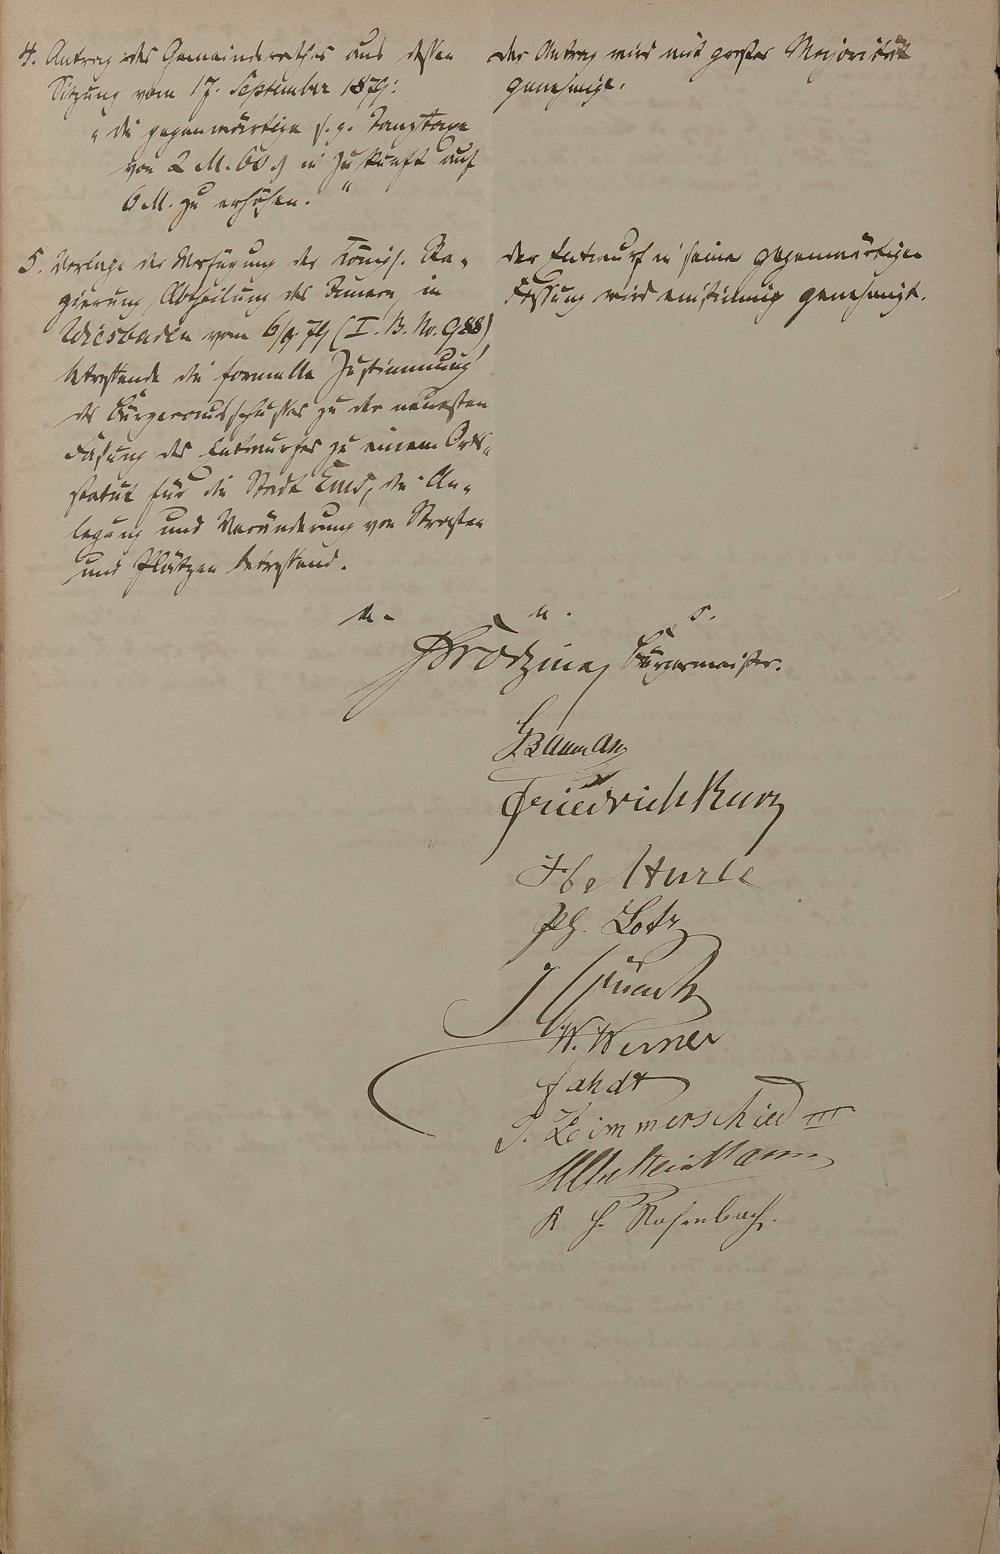 4. Antrag des Gemeinderathes aus dessen
Sitzung vom 17. September 1879:
„die gegenwärtige s. g. Tanztaxe
von 2 M. 60 ₰ in Zukunft auf
6 M. zu erhöhen."
der Antrag wird mit großer Majorität
genehmigt.
5. Vorlage der Verfügung der Königl. Re-
gierung, Abtheilung des Innern, in
Wiesbaden vom 6/9. 79 (I. B. No. 988)
betreffende die formelle Zustimmung
des Bürgerausschusses zu der neuesten
Faßung des Entwurfes zu einem Orts-
statut für die Stadt Ems, die An-
legung und Veränderung von Straßen
und Plätzen betreffend.
der Entwurf in seiner gegenwärtigen
Fassung wird einstimmig genehmigt.
a. u. s.
Bürgermeister.
Baumann
Friedrich Kurz
Ph. Lotz
W. Werner
fahdt
P. Zimmerschied III
H. Rosenbach.